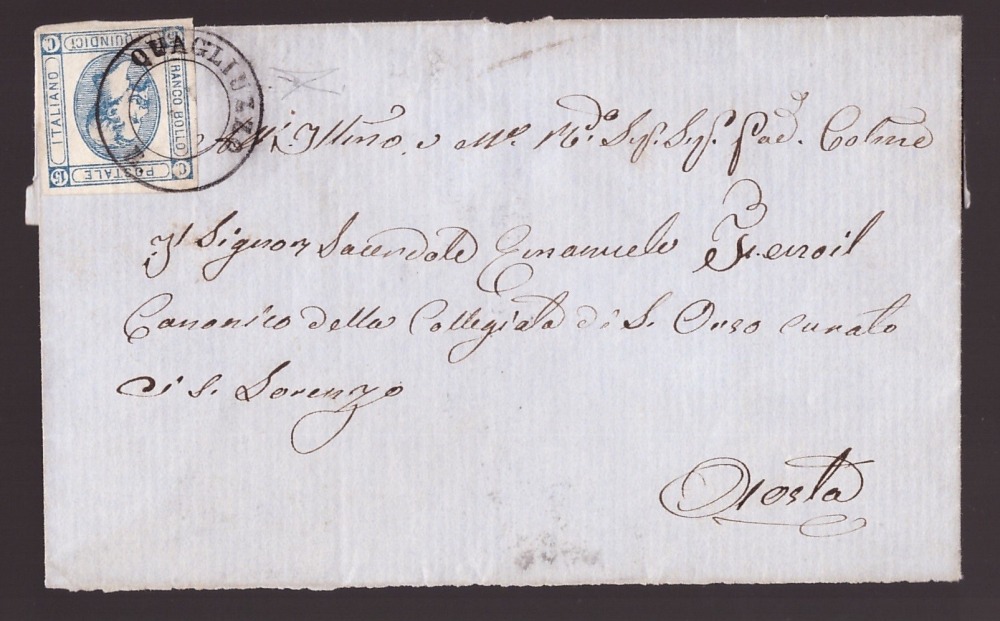 C QUINDICI C
ITALIANO
FRANCO BOLLO
C POSTALE 15
QUAGLIUZZO
All' Illmo. e M.o R.do Sig. Sig. Pad. Colmo
Il Signor Sacerdote Emanuele
Canonico della Collegiata di S. Orso curato
di S. Lorenzo
Aosta